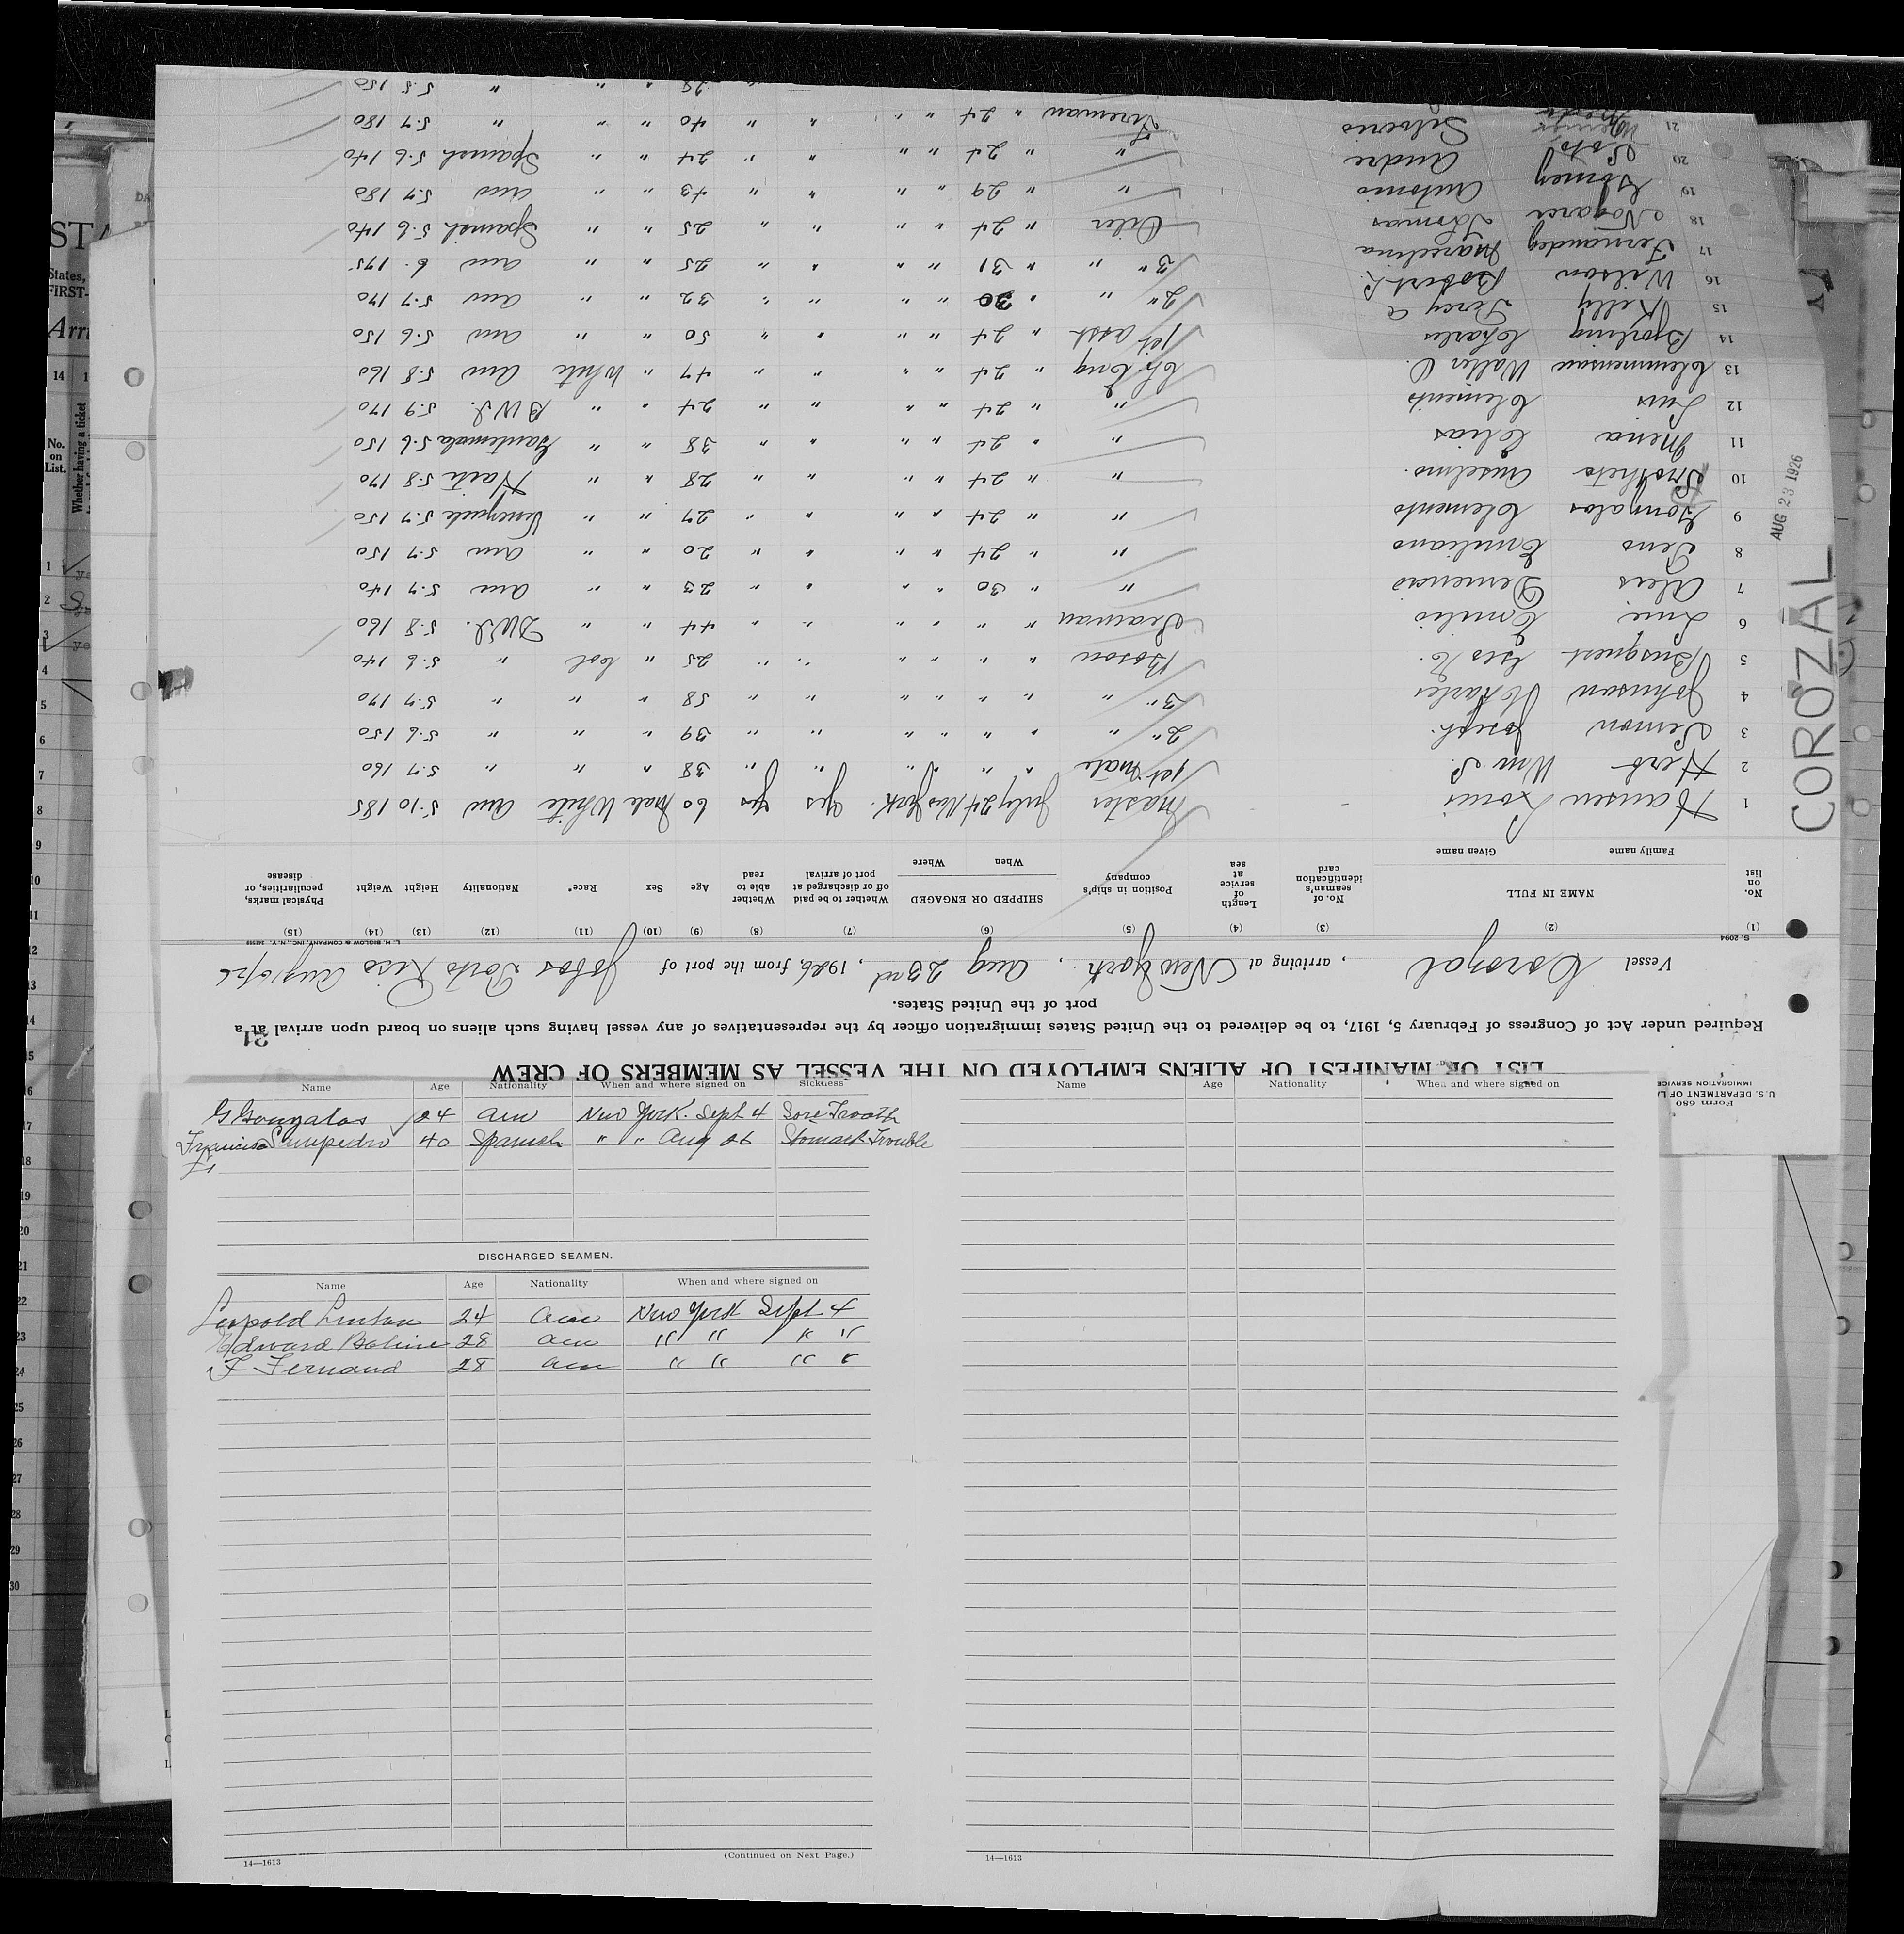 LIST OR MANIFEST OF ALIENS EMPLOYED ON THE VESSEL AS MEMBERS OF CREW
Required under Act of Congress of February 5, 1917, to be delivered to the United States immigration officer by the representatives of any vessel having such aliens on board upon arrival at a
port of the United States.
21
Vessel Corozal, arriving at New York, Aug 23rd, 1926, from the port of Jobos Porto Rico Aug 16/26
S. 2094
L. H. BIGLOW & COMPANY, INC., N. Y.
(1) (2) (3) (4) (5) (6) (7) (8) (9) (10) (11) (12) (13) (14) (15)
No. on list NAME IN FULL No. of seaman's identification card Length of service at sea Position in ship's company SHIPPED OR ENGAGED Whether to be paid off or discharged at port of arrival Whether able to read Age Sex Race* Nationality Height Weight Physical marks, peculiarities, or disease
Family name Given name When Where
1 Hansen Louis Master July 24 New York. Yes Yes 60 Male White Am 5.10 185
2 Herb Wm S. 1st Mate " " " " " " 38 " " " 5.7 160
3 Joseph. 2" " " " " " " " 39 " " " 5.6 150
4 Johnson Charles 3" " " " " " " " 58 " " " 5.7 170
5 Busquest Geo Boson " " " " " " 25 " Col " 5.6 140
6 Emilio Seaman " " " " " " 44 " " D.W.I. 5.8 160
7 " " 30 " " " " 23 " " Am 5.7 140
8 Emiliano " " 24 " " " " 20 " " Am 5.7 150
9 Gonzalos Clemento " " 24 " " " " 27 " " 5.7 150
10 Anselmo. " " 24 " " " " 28 " " Haiti 5.8 170
11 Mena Elias " " 24 " " " " 38 " " Gautemala 5.6 150
12 Luis Clemento " " 24 " " " " 24 " " B.W.I. 5.9 170
13 Clemmensen Walter O. Ch. Eng " 24 " " " " 47 " White Am 5.8 160
14 Bjorling Charles 1st asst " 24 " " " " 50 " " Am 5.6 150
15 Kelly Percy A 2" " " 30 " " " " 32 " " Am 5.7 170
16 Wilson Robert L. 3" " " 31 " " " " 25 " " Am 6. 175
17 Fernandez Marcelina Oiler " 24 " " " " 25 " " Spanish 5.6 140
18 Nogarci Thomas " " 29 " " " " 43 " " Am 5.7 180
19 Gomez Antonio " " 24 " " " " 24 " " Spanish 5.6 140
20 Soto Andre Fireman " 24 " " " " 40 " " " 5.7 180
21 Silverio 28 " " " 5.5 150
AUG 23 1926
COROZAL
Form 680
U.S. DEPARTMENT OF LA
IMMIGRATION SERVICE
Name Age Nationality When and where signed on Sickness
G Gonzalos 24 Am New York. Sept 4 Sore Tooth
Francisco Sampedro 40 Spanish " " Aug 26 Stomach Trouble
DISCHARGED SEAMEN.
Name Age Nationality When and where signed on
Leopold Linton 24 Am New York Sept 4
Edward Bohine 28 Am " " " "
F Fernand 28 Am " " " "
14—1613
(Continued on Next Page.)
Name Age Nationality When and where signed on
14—1613
STA
States,
FIRST-
Arri
14
No. on List.
Whether having a ticket
1
2
3
4
5
6
7
8
9
10
11
12
13
14
15
16
17
18
19
20
21
22
23
24
25
26
27
28
29
30